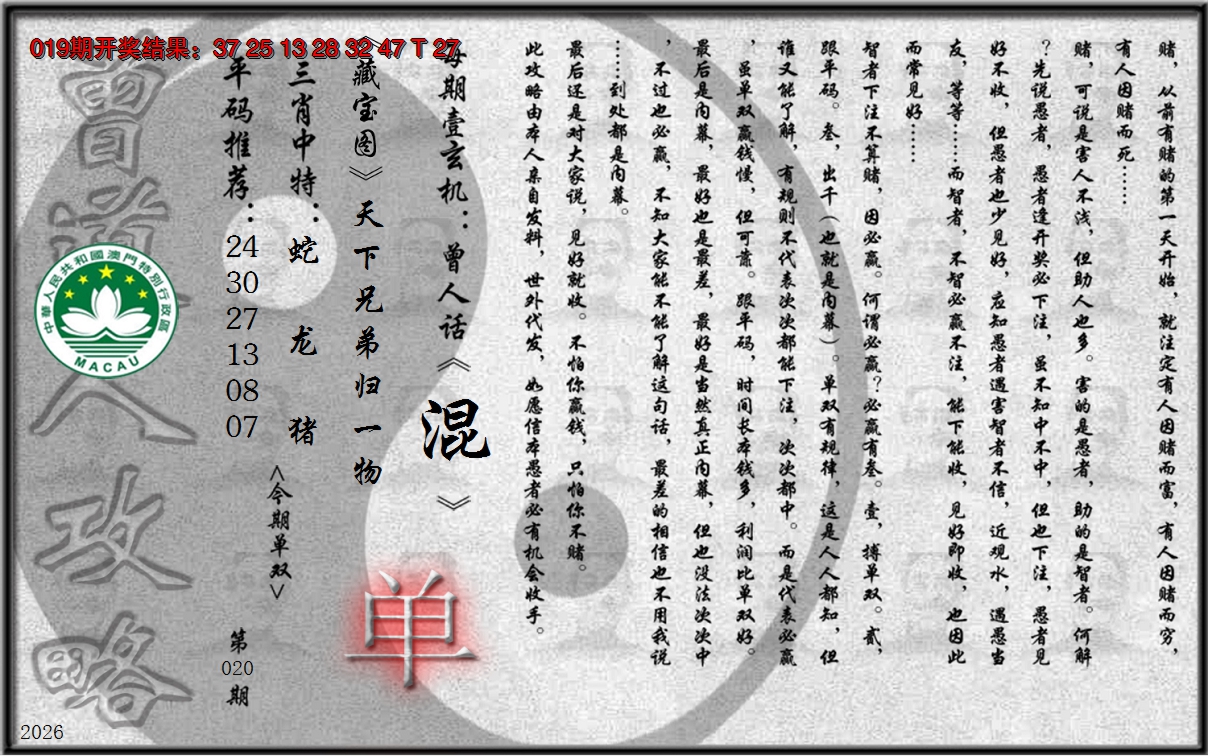 019期开奖结果：37 25 13 28 32 47 T 27
赌，从前有赌的第一天开始，就注定有人因赌而富，有人因赌而穷，
有人因赌而死……
赌，可说是害人不浅，但助人也多。害的是愚者，助的是智者。何解
？先说愚者，愚者逢开奖必下注，虽不知中不中，但也下注，愚者见
好不收，但愚者也少见好，应知愚者遇害智者不信，近观水，遇愚当
友，等等……而智者，不智必赢不注，能下能收，见好即收，也因此
而常见好……
智者下注不算赌，因必赢。何谓必赢？必赢有叁。壹，搏单双。贰，
跟平码。叁，出千（也就是内幕）。单双有规律，这是人人都知，但
谁又能了解，有规则不代表次次都能下注，次次都中。而是代表必赢
，虽单双赢钱慢，但可靠。跟平码，时间长本钱多，利润比单双好。
最后是内幕，最好也是最差，最好是当然真正内幕，但也没法次次中
，不过也必赢，不知大家能不能了解这句话，最差的相信也不用我说
……到处都是内幕。
最后还是对大家说，见好就收。不怕你赢钱，只怕你不赌。
此攻略由本人亲自发料，世外代发，如愿信本愚者必有机会收手。
每期壹玄机：曾人话《混》
《藏宝图》天下兄弟归一物
单
三肖中特：蛇 龙 猪
<今期单双>
平码推荐：24 30 27 13 08 07
第020期
曾道人攻略
中華人民共和國澳門特別行政區
MACAU
2026